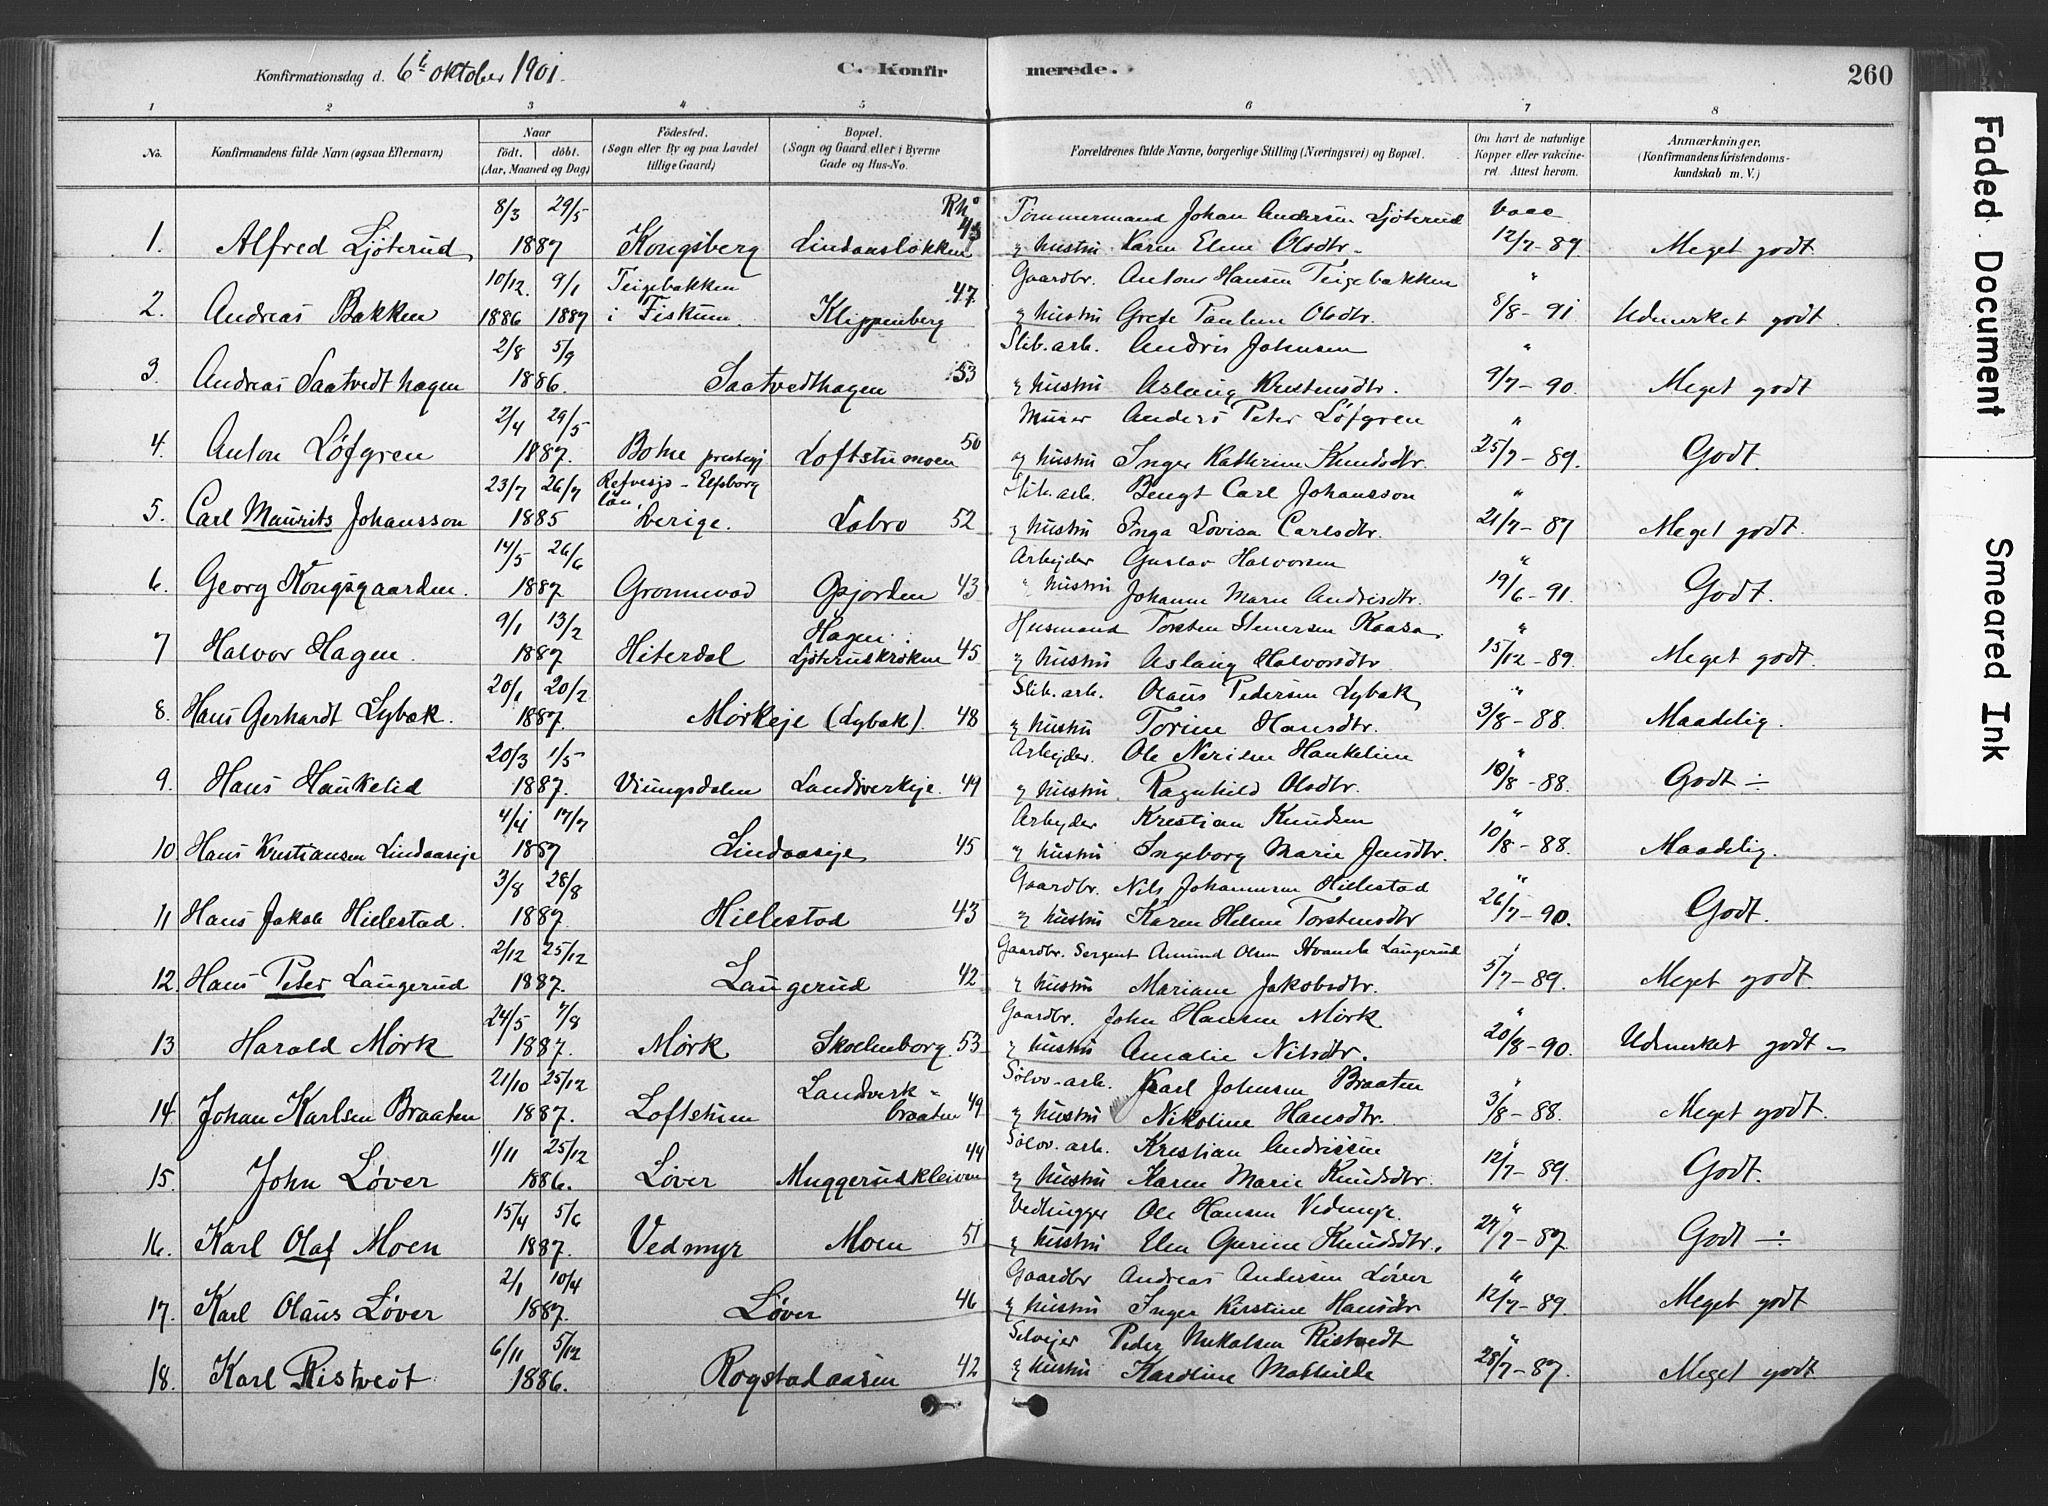 Konfirmationsdag d. 6te oktober 1901.
C. Konfirmerede.
260
1 2 3 4 5 6 7 8
No.
Konfirmandens fulde Navn (ogsaa Efternavn)
Naar
født. døbt.
(Aar, Maaned og Dag)
Fødested.
(Sogn eller By og paa Landet
tillige Gaard)
Bopæl.
(Sogn og Gaard eller i Byerne
Gade og Hus-No.
Forældrenes fulde Navne, borgerlige Stilling (Næringsvei) og Bopæl.
Om havt de naturlige
Kopper eller vakcine-
ret. Attest herom.
Anmærkninger.
(Konfirmandens Kristendoms-
kundskab m. V.)
8/3 29/5 Tømmermand Johan Andersen Ljøterud Vacc
1. Alfred Ljøterud 1887 Kongsberg Lindaasløkken 43 & hustru Karen Eline Olsdtr. 12/7-89 Meget godt
10/12 9/1 Teigebakken 47 Gaardbr. Anton Hansen Teigebakken "
2. Andreas Bakken 1886 1887 i Fiskum. Klippenberg & hustru Grete Pauline Olsdtr. 8/8-91 Udmerket godt.
2/8 5/9 Slib.arb. Andris Johnsen "
3. Andreas Saatvedthagen 1886. Saatvedthagen 53 & hustru Aslaug Kristensdtr. 9/7-90. Meget godt
2/4 29/5 Murer Anders Peter Løfgren "
4. Anton Løfgren 1887. Bohne prestegj Loftstumoen 50 og hustru Inger Kathrine Knudsdtr. 25/7-89. Godt.
23/7 26/7 Refvesjø - Elfsborg län, Slib.arb. Bengt Carl Johansson "
5. Carl Maurits Johansson 1885 Sverige. Labro 52 & hustru Inga Lovisa Carlsdtr. 21/7-87 Meget godt.
14/5 26/6 Arbejder Gustav Halvorsen "
6. Georg Kongsgaarden. 1887 Gronnevad Gjorden 43 " hustru Johanne Marie Andrisdtr. 19/6-91. Godt.
9/1 13/2 Hagen Husmand Torsten Stenersen Kaasa. "
7 Halvor Hagen. 1887 Hiterdal Ljøterudkroken 45 & hustru Aslaug Halvorsdtr. 15/12-89. Meget godt.
20/1 20/2 Slib.arb. Olaus Pedersen Lybak "
8. Hans Gerhardt Lybak. 1887. Mørkeje (Lybak). 48 & hustru Torine Hansdtr. 3/8-88. Maadelig.
20/3 1/5 Arbejder. Ole Nirisen Haukelien "
9. Hans Haukelid 1887. Vinungsdalen Landverkeje. 49 & hustru Ragnhild Olsdtr. 10/8-88. Godt ÷
4/4 17/7 Arbejder Kristian Knudsen "
10 Hans Kristiansen Lindaaseje 1887 Lindaaseje 45 & hustru Ingeborg Marie Jensdtr. 10/8-88. Maadelig.
3/8 28/8 Gaardbr. Nils Johannesen Hillestad "
11 Hans Jakob Hillestad. 1887. Hillestad 43 & hustru Karen Helene Torstensdtr 26/7-90. Godt.
2/12 25/12 Gaardbr. Sergent Amund Olsen Laugerud
12. Hans Peter Laugerud 1887. Laugerud 42 & hustru Mariane Jakobsdtr. 5/7-89. Meget godt.
24/5 7/8 Gaardbr. John Hansen Mørk "
13 Harald Mørk 1887. Mørk Skollenborg. 53 & hustru Amalie Nilsdtr. 20/8-90. Udmerket godt -
21/10 25/12 Landverk- Sølvv-arb. Karl Johnsen Braaten "
14. Johan Karlsen Braaten 1887. Loftstuen braaten 49 & hustru Nikoline Hansdtr. 3/8-88. Meget godt.
1/11 25/12 44 Sølvv.arb. Kristian Andrissen
15. John Løver 1886. Løver Muggerudkleiven & hustru Karen Marie Knudsdtr. 12/7-89. Godt.
15/4 5/6 Vedhugger Ole Hansen Vedmyr. "
16. Karl Olaf Moen 1887. Vedmyr Moen 51 & hustru Elen Gurine Knudsdtr. 27/7-87. Godt ÷
2/1 10/4 Gaardbr Andreas Andersen Løver "
17. Karl Olaus Løver 1887. Løver 46 & hustru Inger Kirstine Hansdtr 12/7-89. Meget godt
6/11 5/12 Selvejer Peder Mikalsen Ristvedt "
18. Karl Ristvedt 1886. Rogstadaasen 42 & hustru Karoline Mathilde 28/7-87. Meget godt.
Faded Document
Smeared Ink